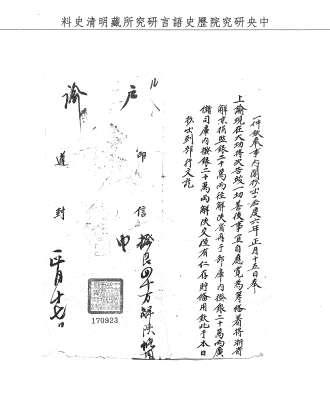 中央研究院歷史語言研究所藏明清史料
一件欽奉事內閣抄出嘉慶六年正月十五日奉
上諭現在大功將次告竣一切善後事宜自應寬為籌備著將浙省
解京捐監銀二十萬兩徑解陝省再于部庫內撥銀二十萬兩廣
儲司庫內撥銀二十萬兩解陝交陸有仁存貯備用欽此于本日
抄出到部行文訖
戶 印信
撥銀四十万解陝備用
諭 遵封
正月十七日
170923